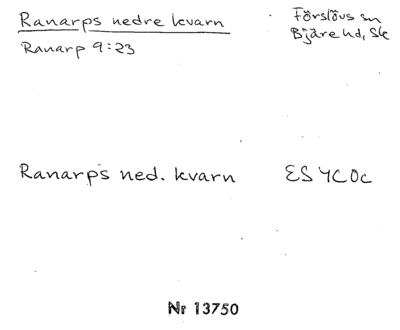 Ranarps nedre kvarn
Förslövs sn
Ranarp 9:23
Bjäre hd, Sk
Ranarps ned. kvarn
ES 4C0c
Nr 13750